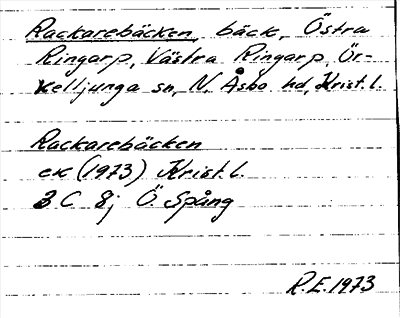 Rackarebäcken, bäck, Östra
Ringarp, Västra Ringarp, Ör-
kelljunga sn, N. Åsbo hd, Krist.l.
Rackarebäcken
ek (1973) Krist.l.
3 C 8j Ö Spång
R.E. 1973